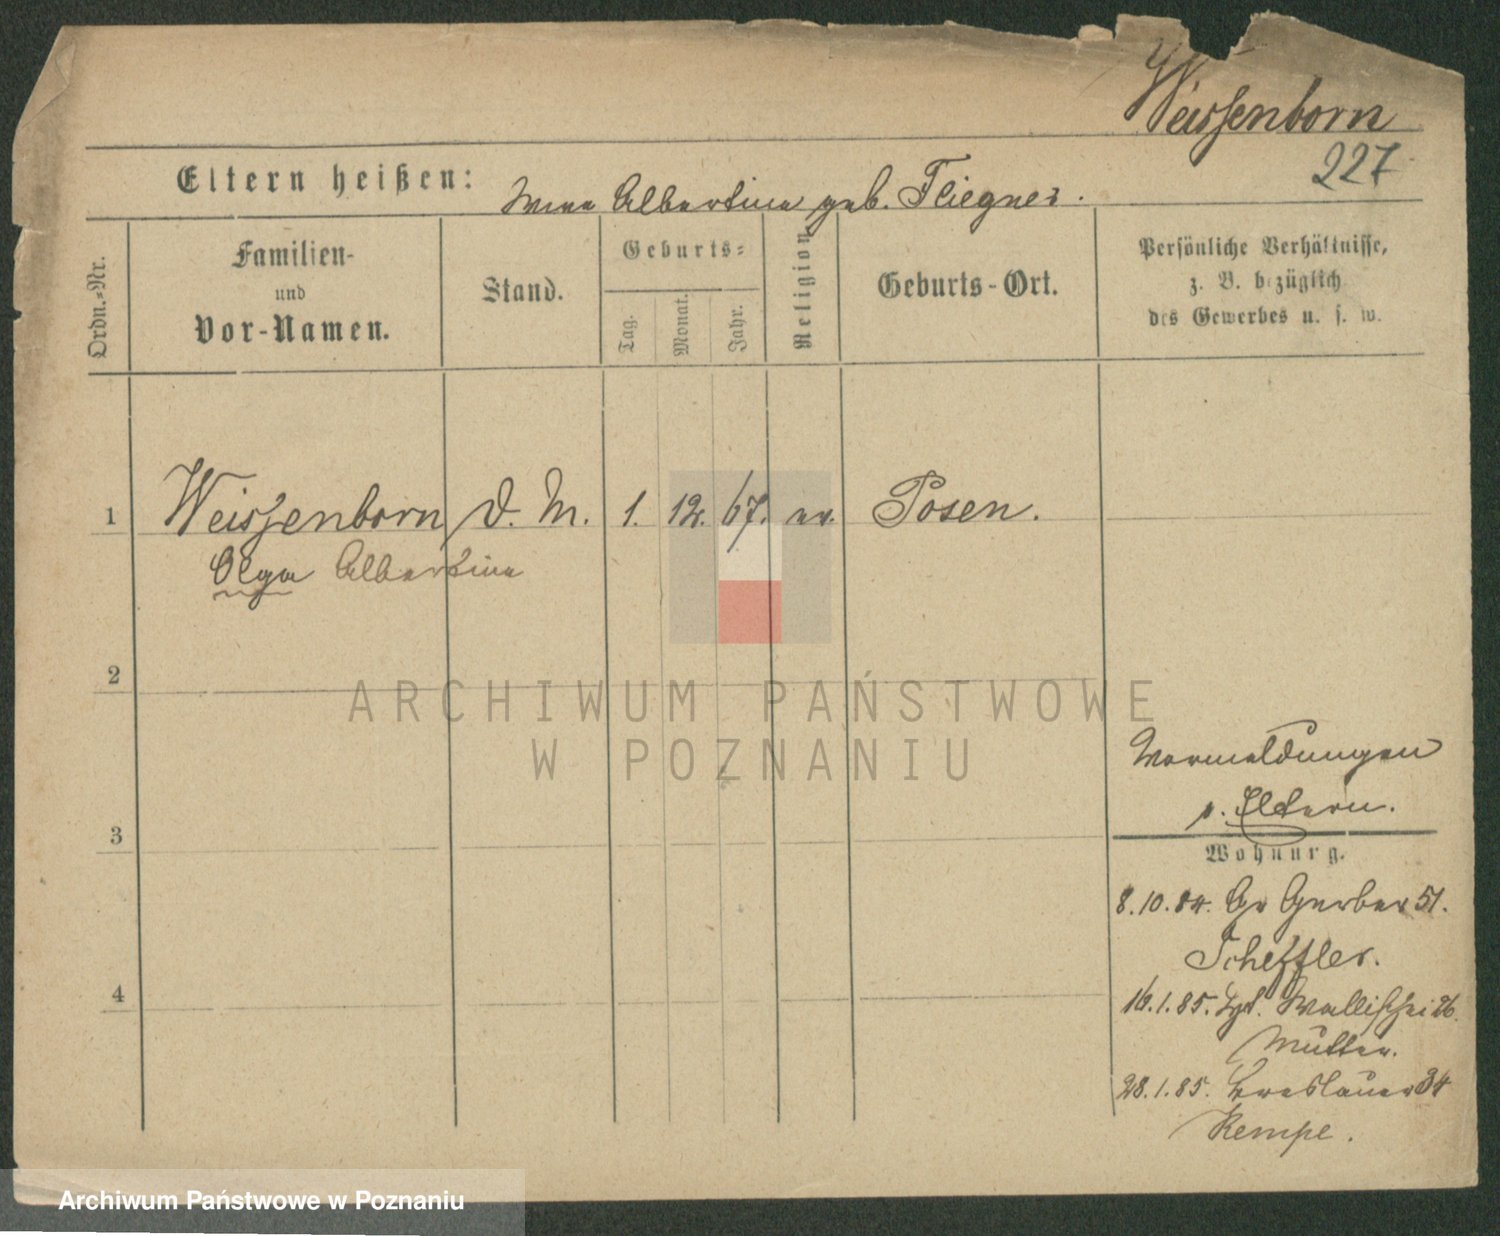 Weissenborn
227
Eltern heißen: Wwe Albertine geb. Fliegner.
Ordn.=Nr.
Familien-
und
Vor-Namen.
Stand.
Geburts=
Tag.
Monat.
Jahr.
Religion
Geburts-Ort.
Persönliche Verhältnisse,
z. B. bezüglich
des Gewerbes u. s. w.
1 Weissenborn D. M. 1. 12. 67. ev. Posen.
Olga Albertine
2
ARCHIWUM PAŃSTWOWE
W POZNANIU
Vormeldungen
s. Eltern.
3
Wohnung.
8.10.84. Gr Gerber 51.
Scheffler.
4
16.1.85. Wallischei 26.
Mutter.
28.1.85. Breslauer 34
Kempe.
Archiwum Państwowe w Poznaniu